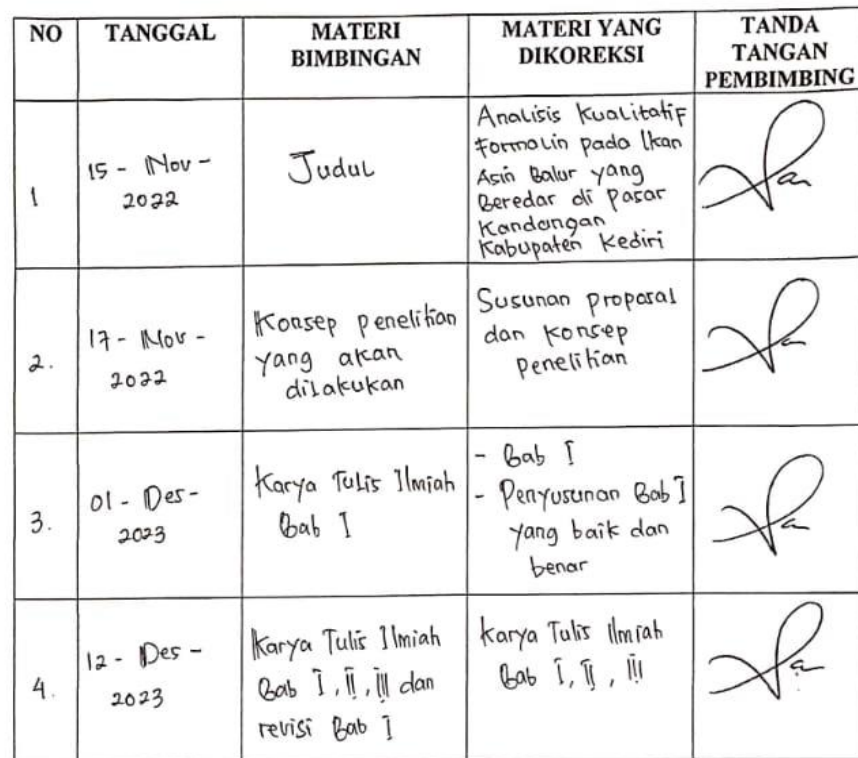 NO
TANGGAL
MATERI
BIMBINGAN
MATERI YANG
DIKOREKSI
TANDA
TANGAN
PEMBIMBING
1
15 - Nov -
2022
Judul
Analisis Kualitatif
Formalin pada Ikan
Asin Balur yang
Beredar di Pasar
Kandangan
Kabupaten Kediri
2.
17 - Nov -
2022
Konsep penelitian
yang akan
dilakukan
Susunan proposal
dan konsep
penelitian
3.
01 - Des -
2023
Karya Tulis Ilmiah
Bab I
- Bab I
- Penyusunan Bab I
yang baik dan
benar
4.
12 - Des -
2023
Karya Tulis Ilmiah
Bab I, II, III dan
revisi Bab I
Karya Tulis Ilmiah
Bab I, II, III